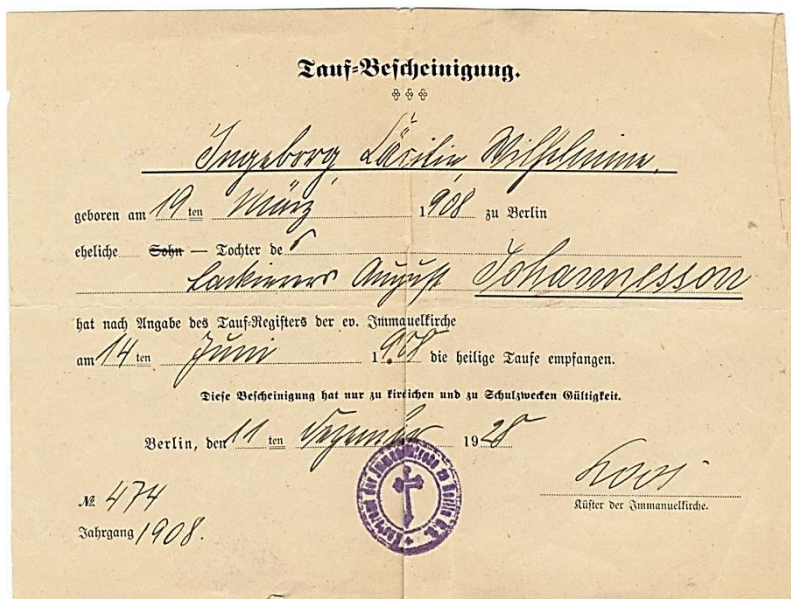 Tauf-Bescheinigung.
Ingeborg, Cäcilie Wilhelmine,
geboren am 19ten März 1908 zu Berlin
eheliche Sohn — Tochter des
Lackierers August Johannesson
hat nach Angabe des Tauf-Registers der ev. Immanuelkirche
am 14ten Juni 1908 die heilige Taufe empfangen.
Diese Bescheinigung hat nur zu kirchlichen und zu Schulzwecken Gültigkeit.
Berlin, den 11ten Dezember 1928
Koos
№ 474
Küster der Immanuelkirche.
Jahrgang 1908.